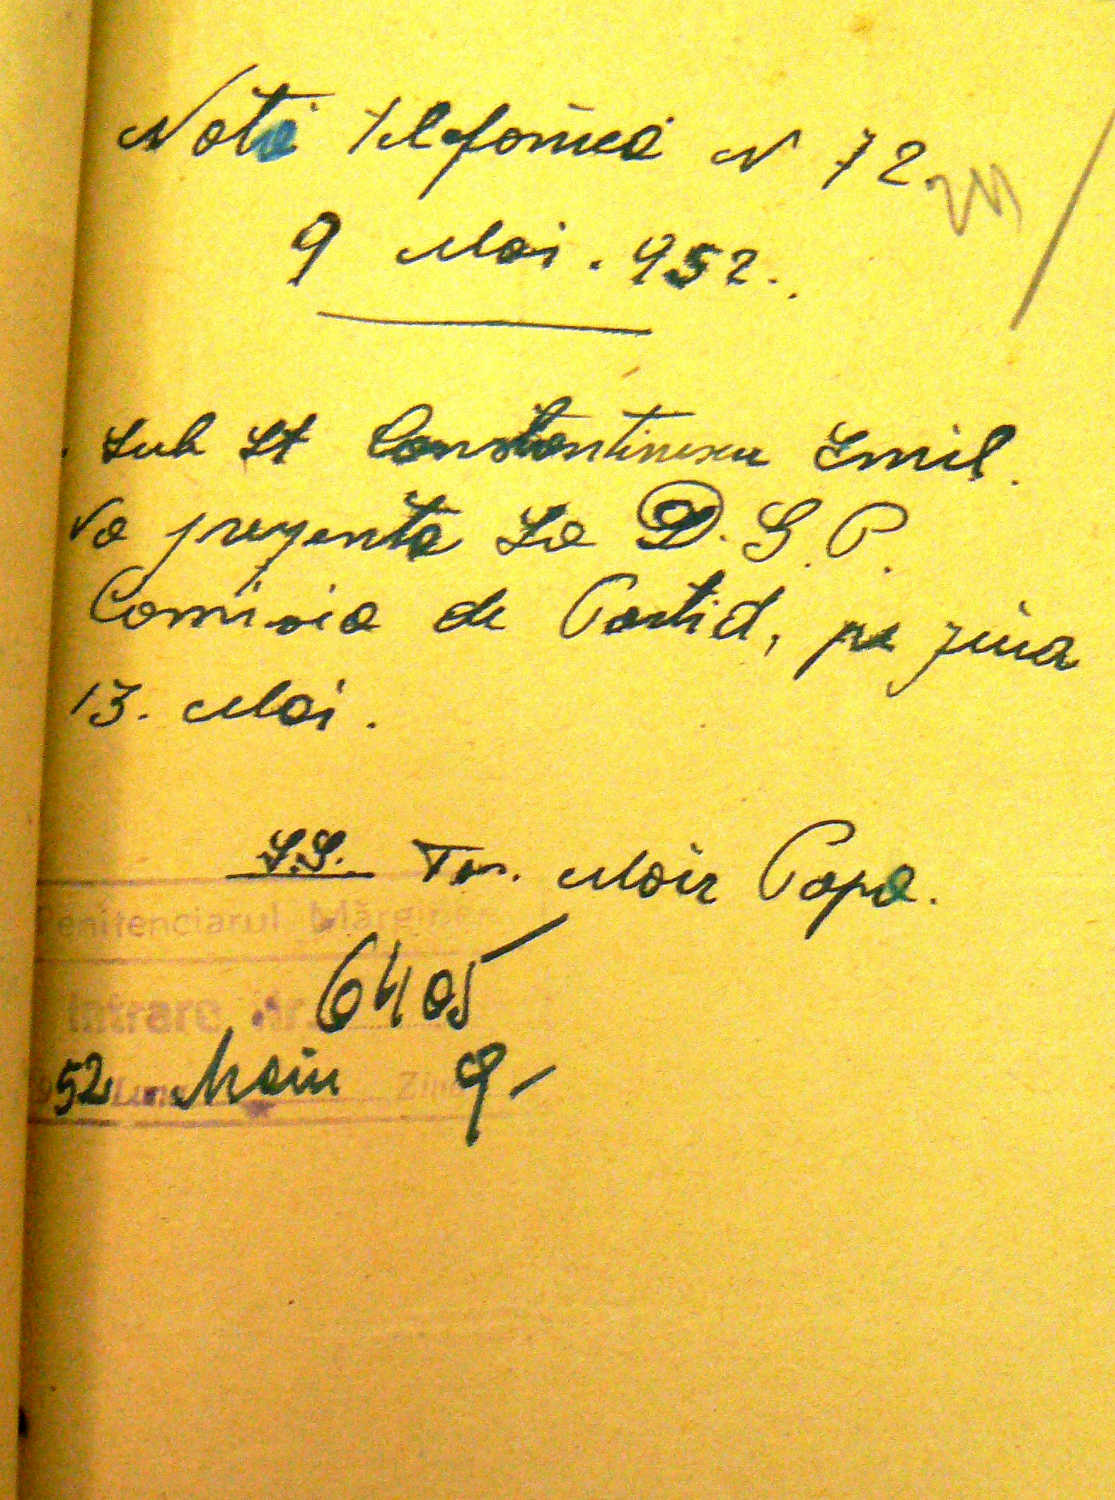 Notă Telefonică N 72.
9 Mai. 952.
Sub Lt Constantinescu Emil.
Va prezenta La D.G.P.
Comisia de Partid, pe ziua
13. Mai.
S.S. Tov. Maior Popa.
Penitenciarul Mărginen
Intrare Nr. 6405
1952 Luna Maiu Ziua 9